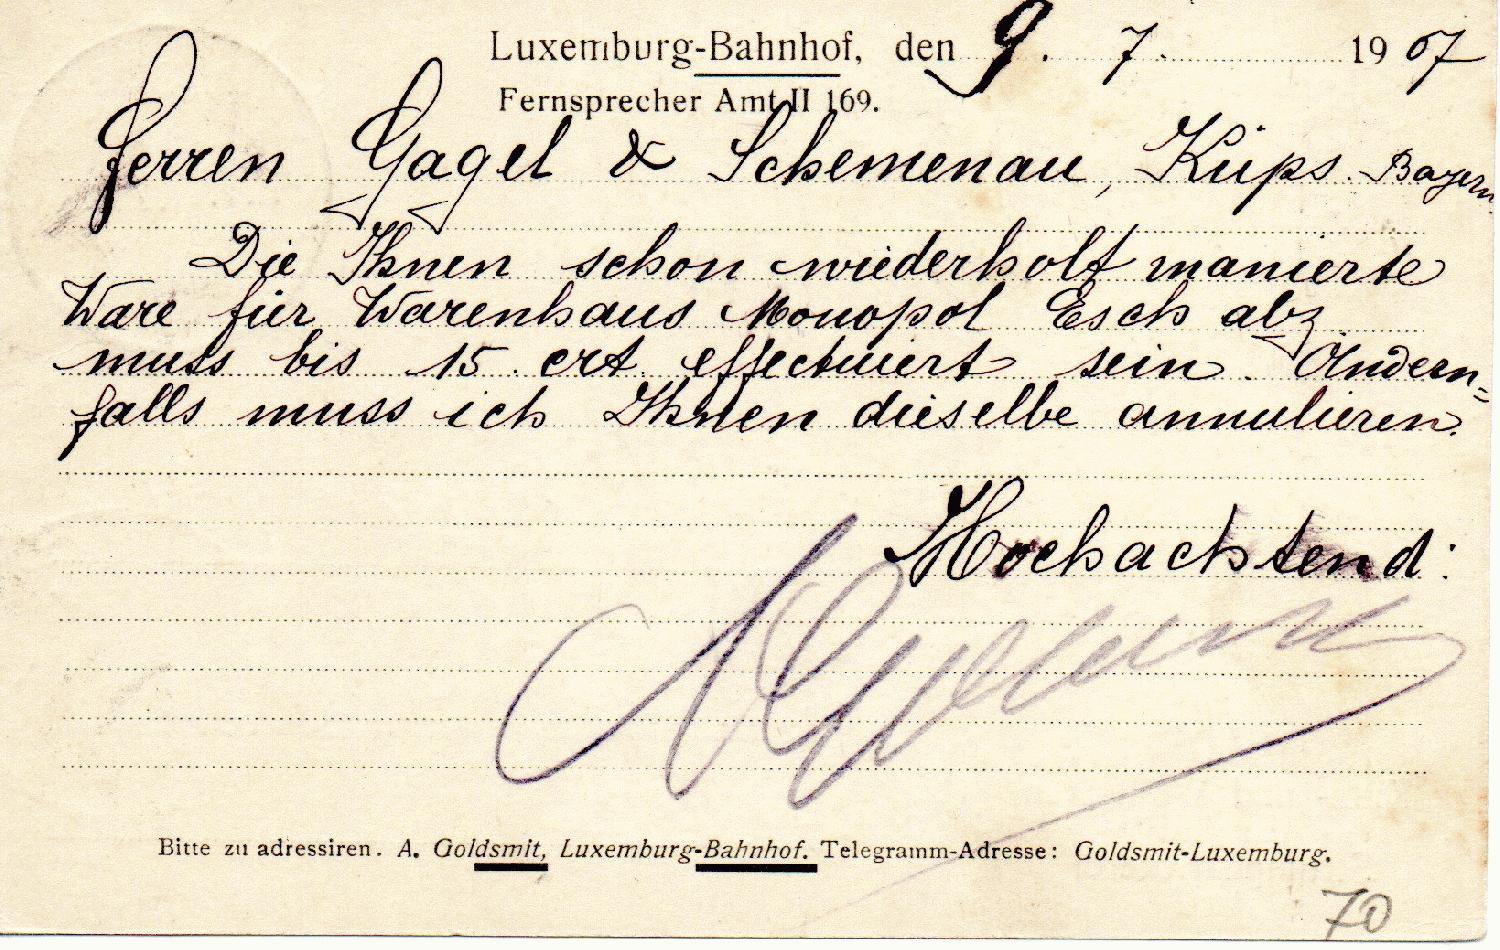 Luxemburg-Bahnhof, den 9. 7. 1907
Fernsprecher Amt II 169.
Herren Gagel & Schemenau, Küps. Bayern.
Die Ihnen schon wiederholt manierte
Ware für Warenhaus Monopol Esch abz
muss bis 15. crt effectuiert sein. Andern=
falls muss ich Ihnen dieselbe annulieren.
Hochachtend:
Bitte zu adressiren. A. Goldsmit, Luxemburg-Bahnhof. Telegramm-Adresse: Goldsmit-Luxemburg.
70